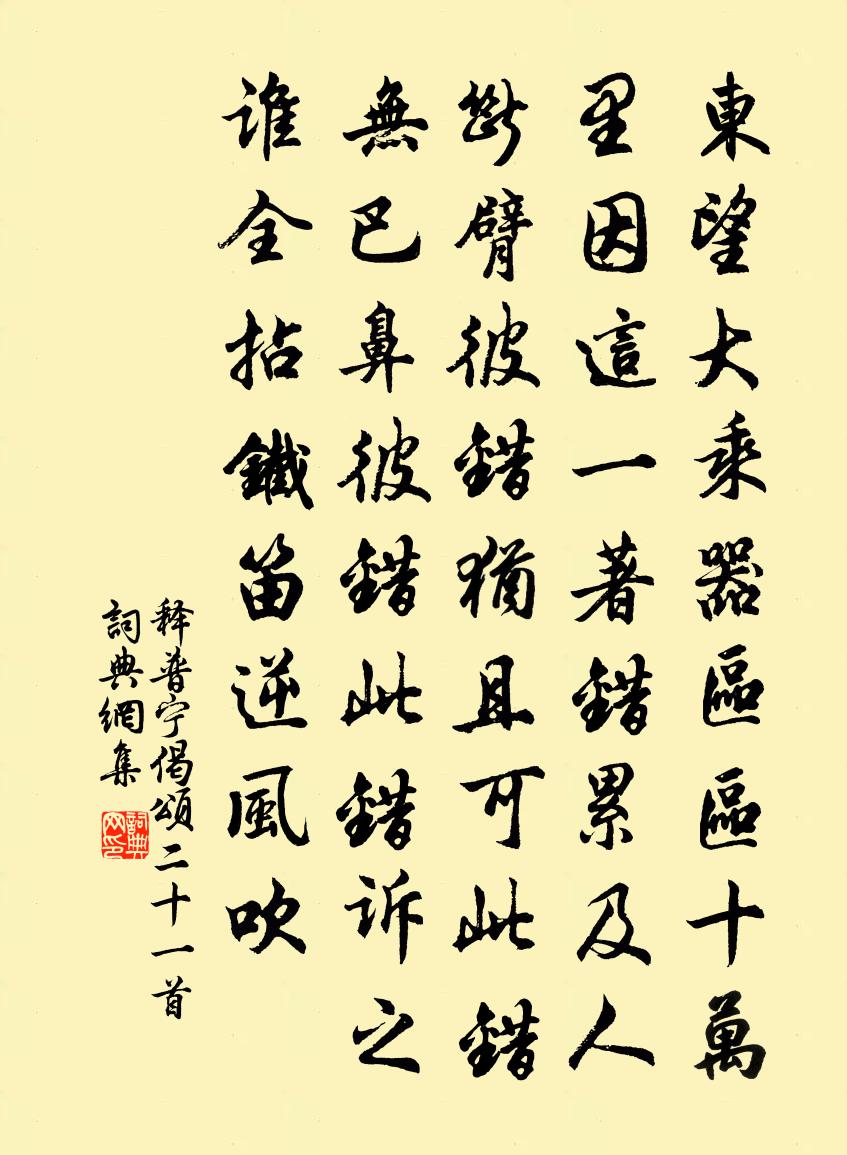 東望大乘器區區十萬
里因這一著錯累及人
斷臂彼錯猶且可此錯
無巴鼻彼錯此錯訴之
誰全拈鐵笛逆風吹
释普宁偈頌二十一首
詞典網集
詞典网印